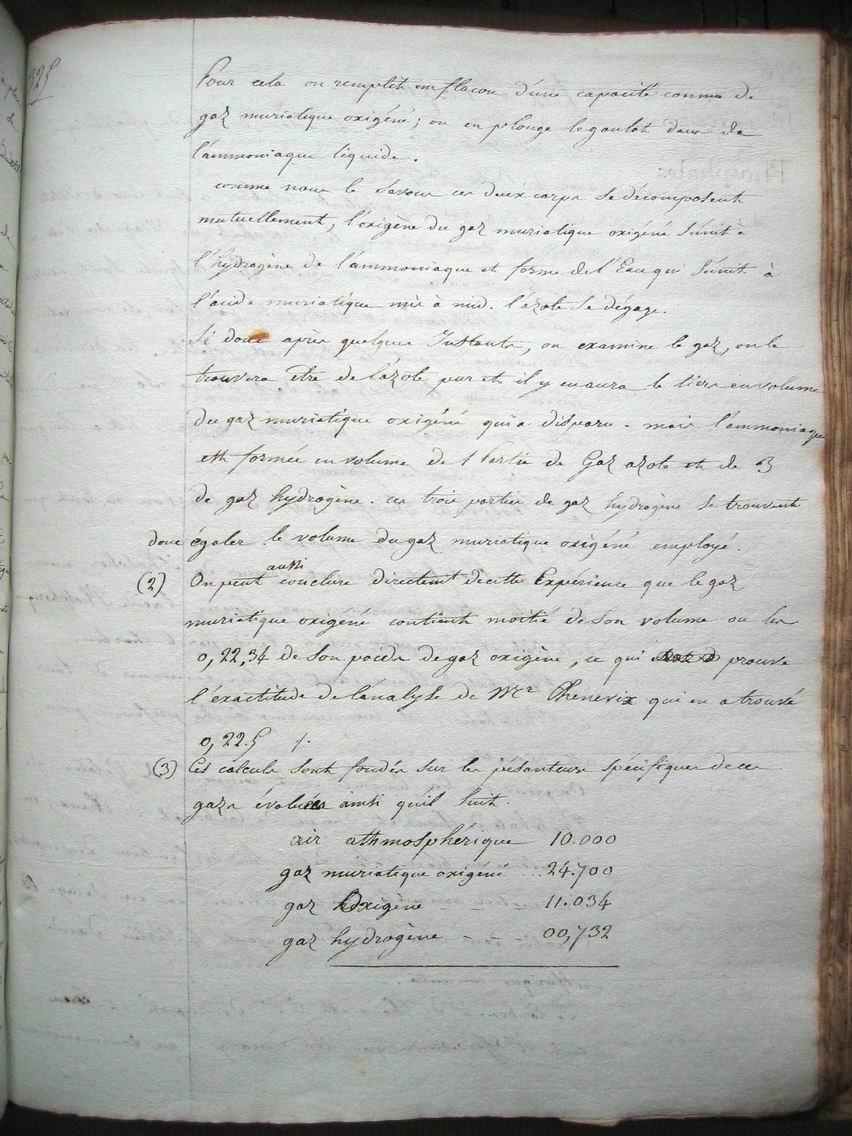 325
Pour cela on remplit un flacon d'une capacité connue de
gaz muriatique oxigéné; on en plonge le goulot dans de
l'ammoniaque liquide.
comme nous le savons ces deux corps se décomposent
mutuellement, l'oxigène du gaz muriatique oxigéné s'unit à
l'hydrogène de l'ammoniaque et forme de l'Eau qui s'unit à
l'acide muriatique mis à nud. l'azote se dégage.
Si donc après quelques Instants, on examine le gaz, on le
trouvera être de l'azote pur et il y en aura le tiers en volume
du gaz muriatique oxigéné qui a disparu. mais l'ammoniaque
est formée en volume de 1 Partie de Gaz azote et de 3
de gaz hydrogène. ces trois parties de gaz hydrogène se trouvent
donc égaler le volume du gaz muriatique oxigéné employé.
(2) On peut aussi conclure directement de cette Expérience que le gaz
muriatique oxigéné contient moitié de son volume ou les
0,22,34 de son poids de gaz oxigène, ce qui prouve
l'exactitude de l'analyse de Mr Chenevix qui en a trouvé
0,22.5 /.
(3) Ces calculs sont fondés sur les pésanteurs spécifiques de ces
gazs évalués ainsi qu'il suit.
air athmosphérique 10.000
gaz muriatique oxigené .. 24.700
gaz Oxigène - - 11.034
gaz hydrogène - - 00,732